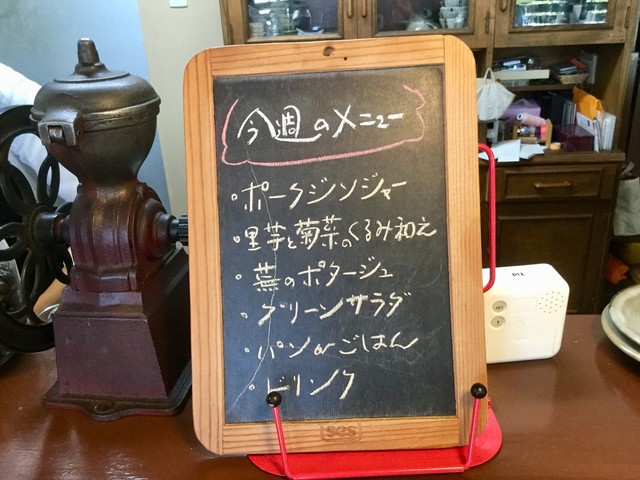 今週のメニュー
・ポークジンジャー
・里芋と菊菜のくるみ和え
・蕪のポタージュ
・グリーンサラダ
・パンorごはん
・ドリンク
ses